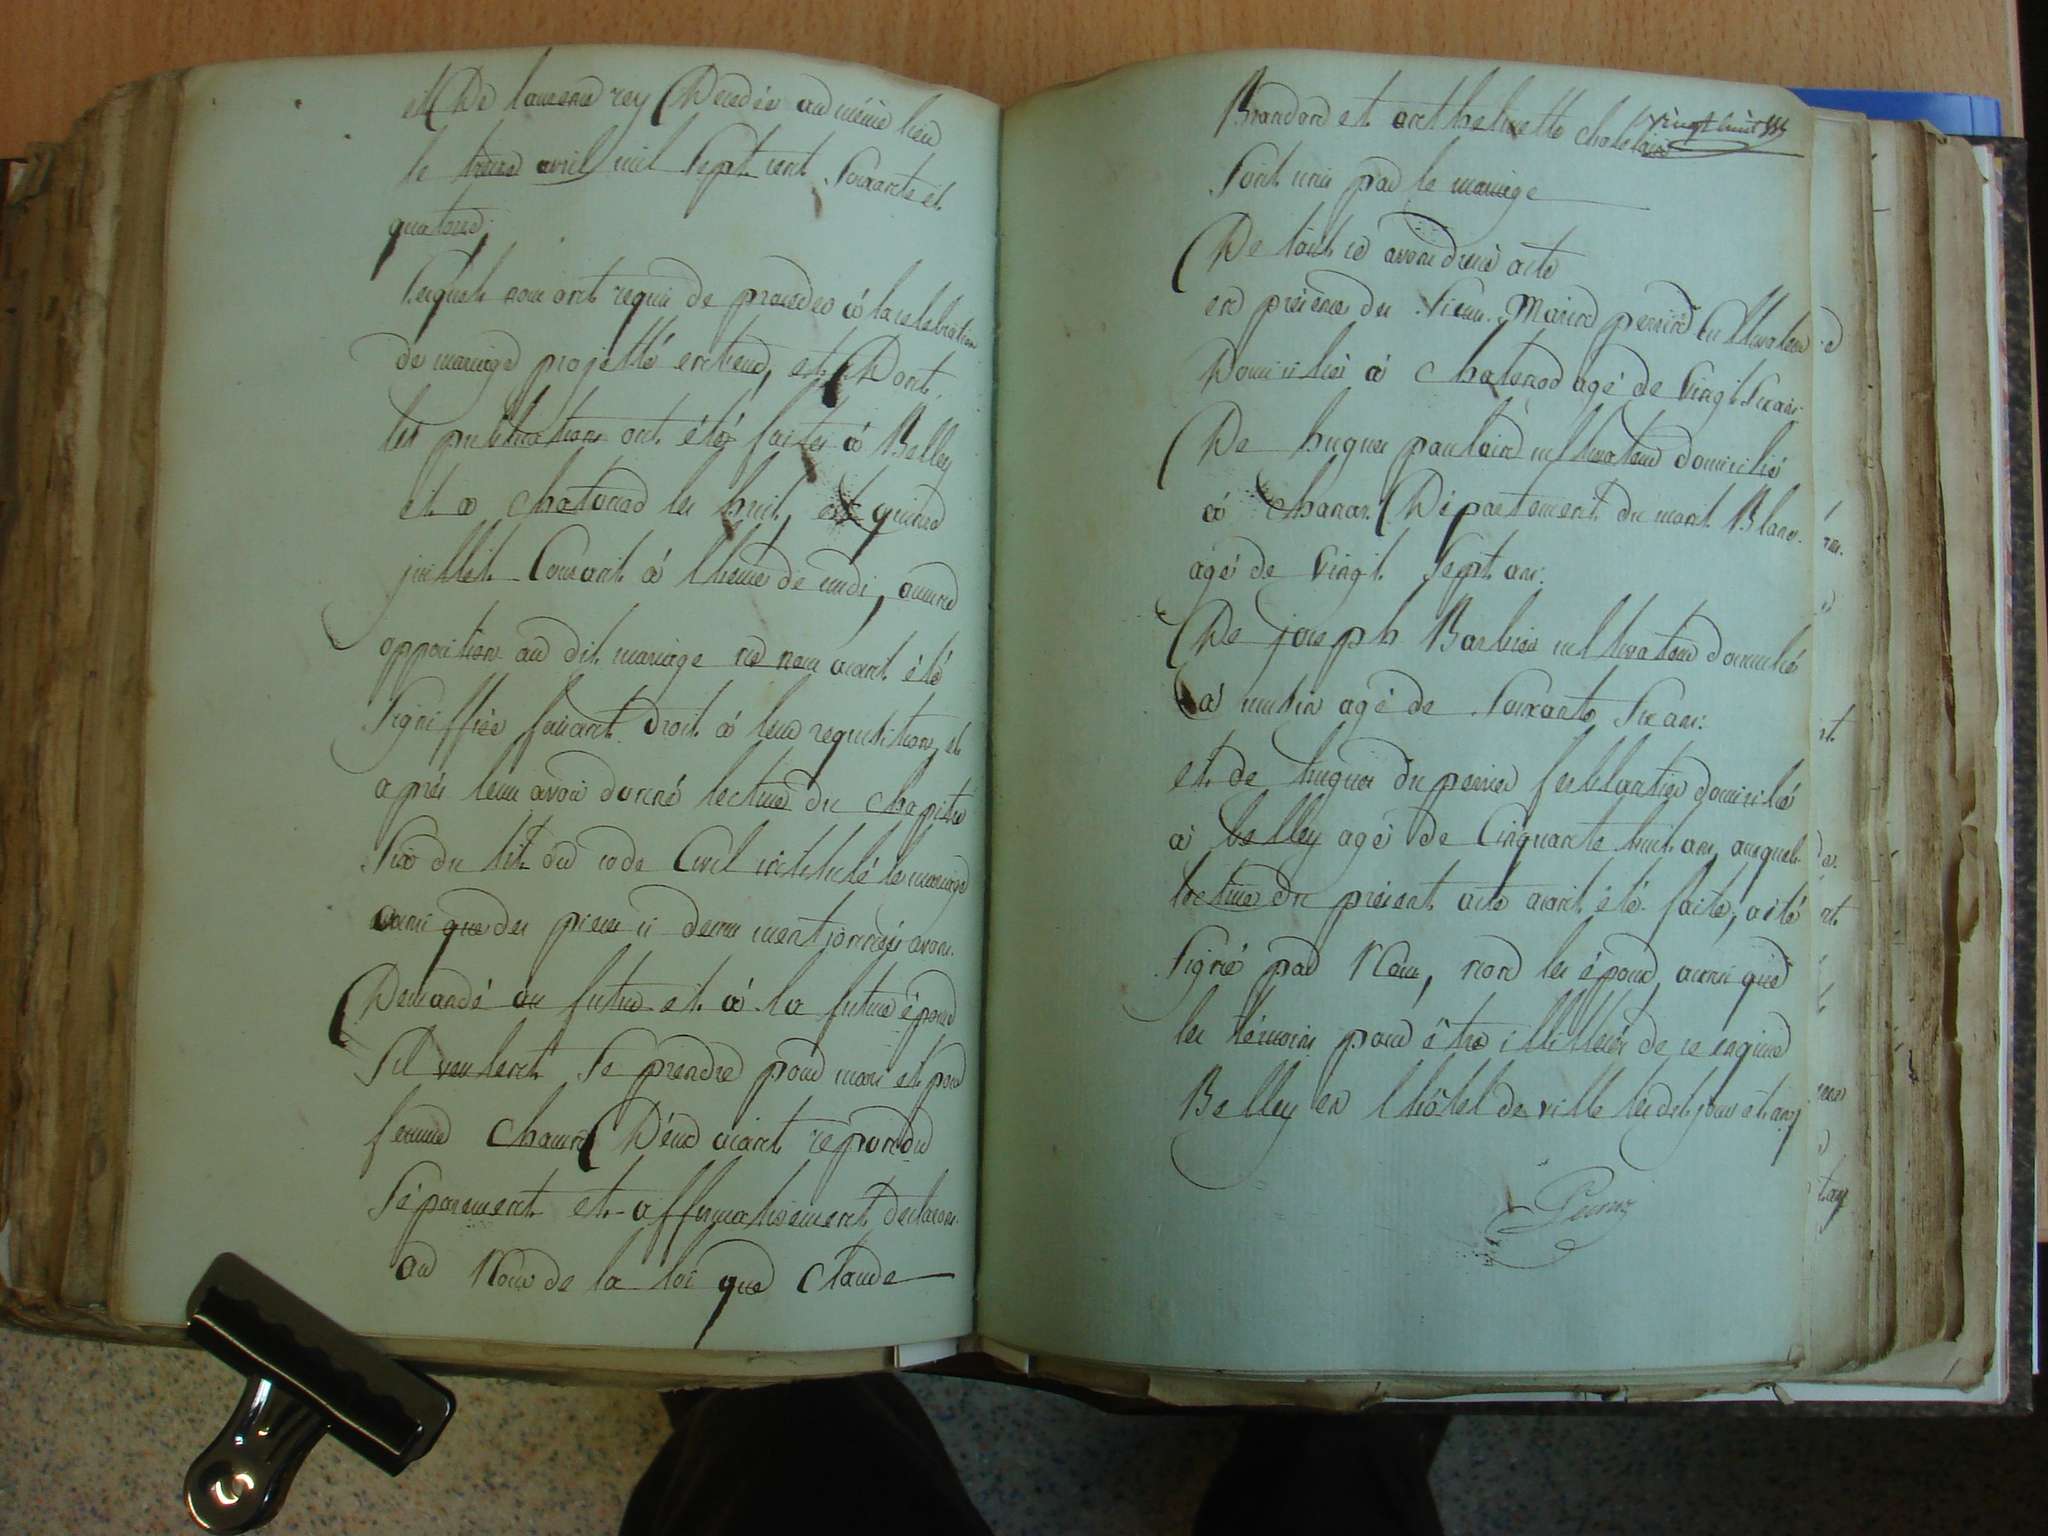 et De laurence rey Decedée au même lieu
le treize avril mil Sept cent Soixante et
quatorze
Lesquels nous ont requis de proceder à la celebration
de mariage projetté entreux, et Dont
les publications ont été faites à Belley
et a chatonod les huit, et quinze
juillet Courant à l heure de midi, aucune
opposition au dit mariage ne nous aiant été
Signiffiée faisant Droit à leur requisition, et
après leur avoir donné lecture du chapitre
Six du tit. du code Civil intitulé le mariage
ainsi que des pieces ci dessus mentionnées avons
Demandé au futur et à la future épouse
Sil veulent Se prendre pour mari et pour
femme chacun Deux aiant répondu
Séparement et affirmativement, declarons
au Nom de la loi que Claude
vingt huit
Brandon et anthelmette chatelain
Sont unis par le mariage
De tout ce avons dressé acte
en présence du Sieur Marin perrin Cultivateur
Domicilié à chatonod agé de vingt Six ans
De hugues pantain cultivateur domicilié
à Chanas Département du mont Blanc
agé de vingt Sept ans
De joseph Barbier cultivateur domicilié
à musin agé de Soixante Six ans
et de hugues du perrier ferblantier domicilié
à belley agé de Cinquante huit ans, auxquels
lecture du présent acte aiant été faite, a été
Signé par Nous, non les époux, ainsi que
les témoins pour être illitterés de ce enquis
Belley en l hôtel de ville les dit jour et an